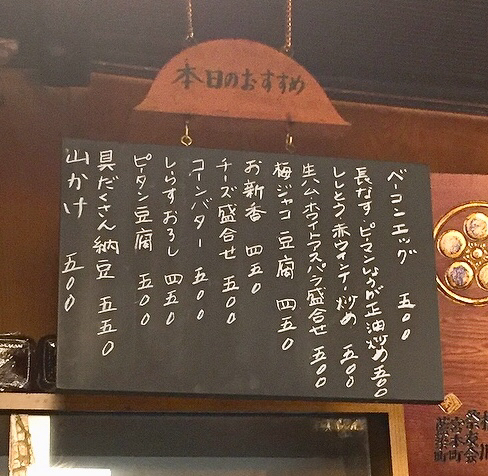 本日のおすすめ
ベーコンエッグ 五〇〇
長なす ピーマンしょうが正油炒め 五〇〇
ししとう 赤ウインナー炒め 五〇〇
生ハム ホワイトアスパラ盛合せ 五〇〇
梅ジャコ豆腐 四五〇
お新香 四五〇
チーズ盛合せ 五〇〇
コーンバター 五〇〇
しらすおろし 四五〇
ピータン豆腐 五〇〇
具だくさん納豆 五五〇
山かけ 五〇〇